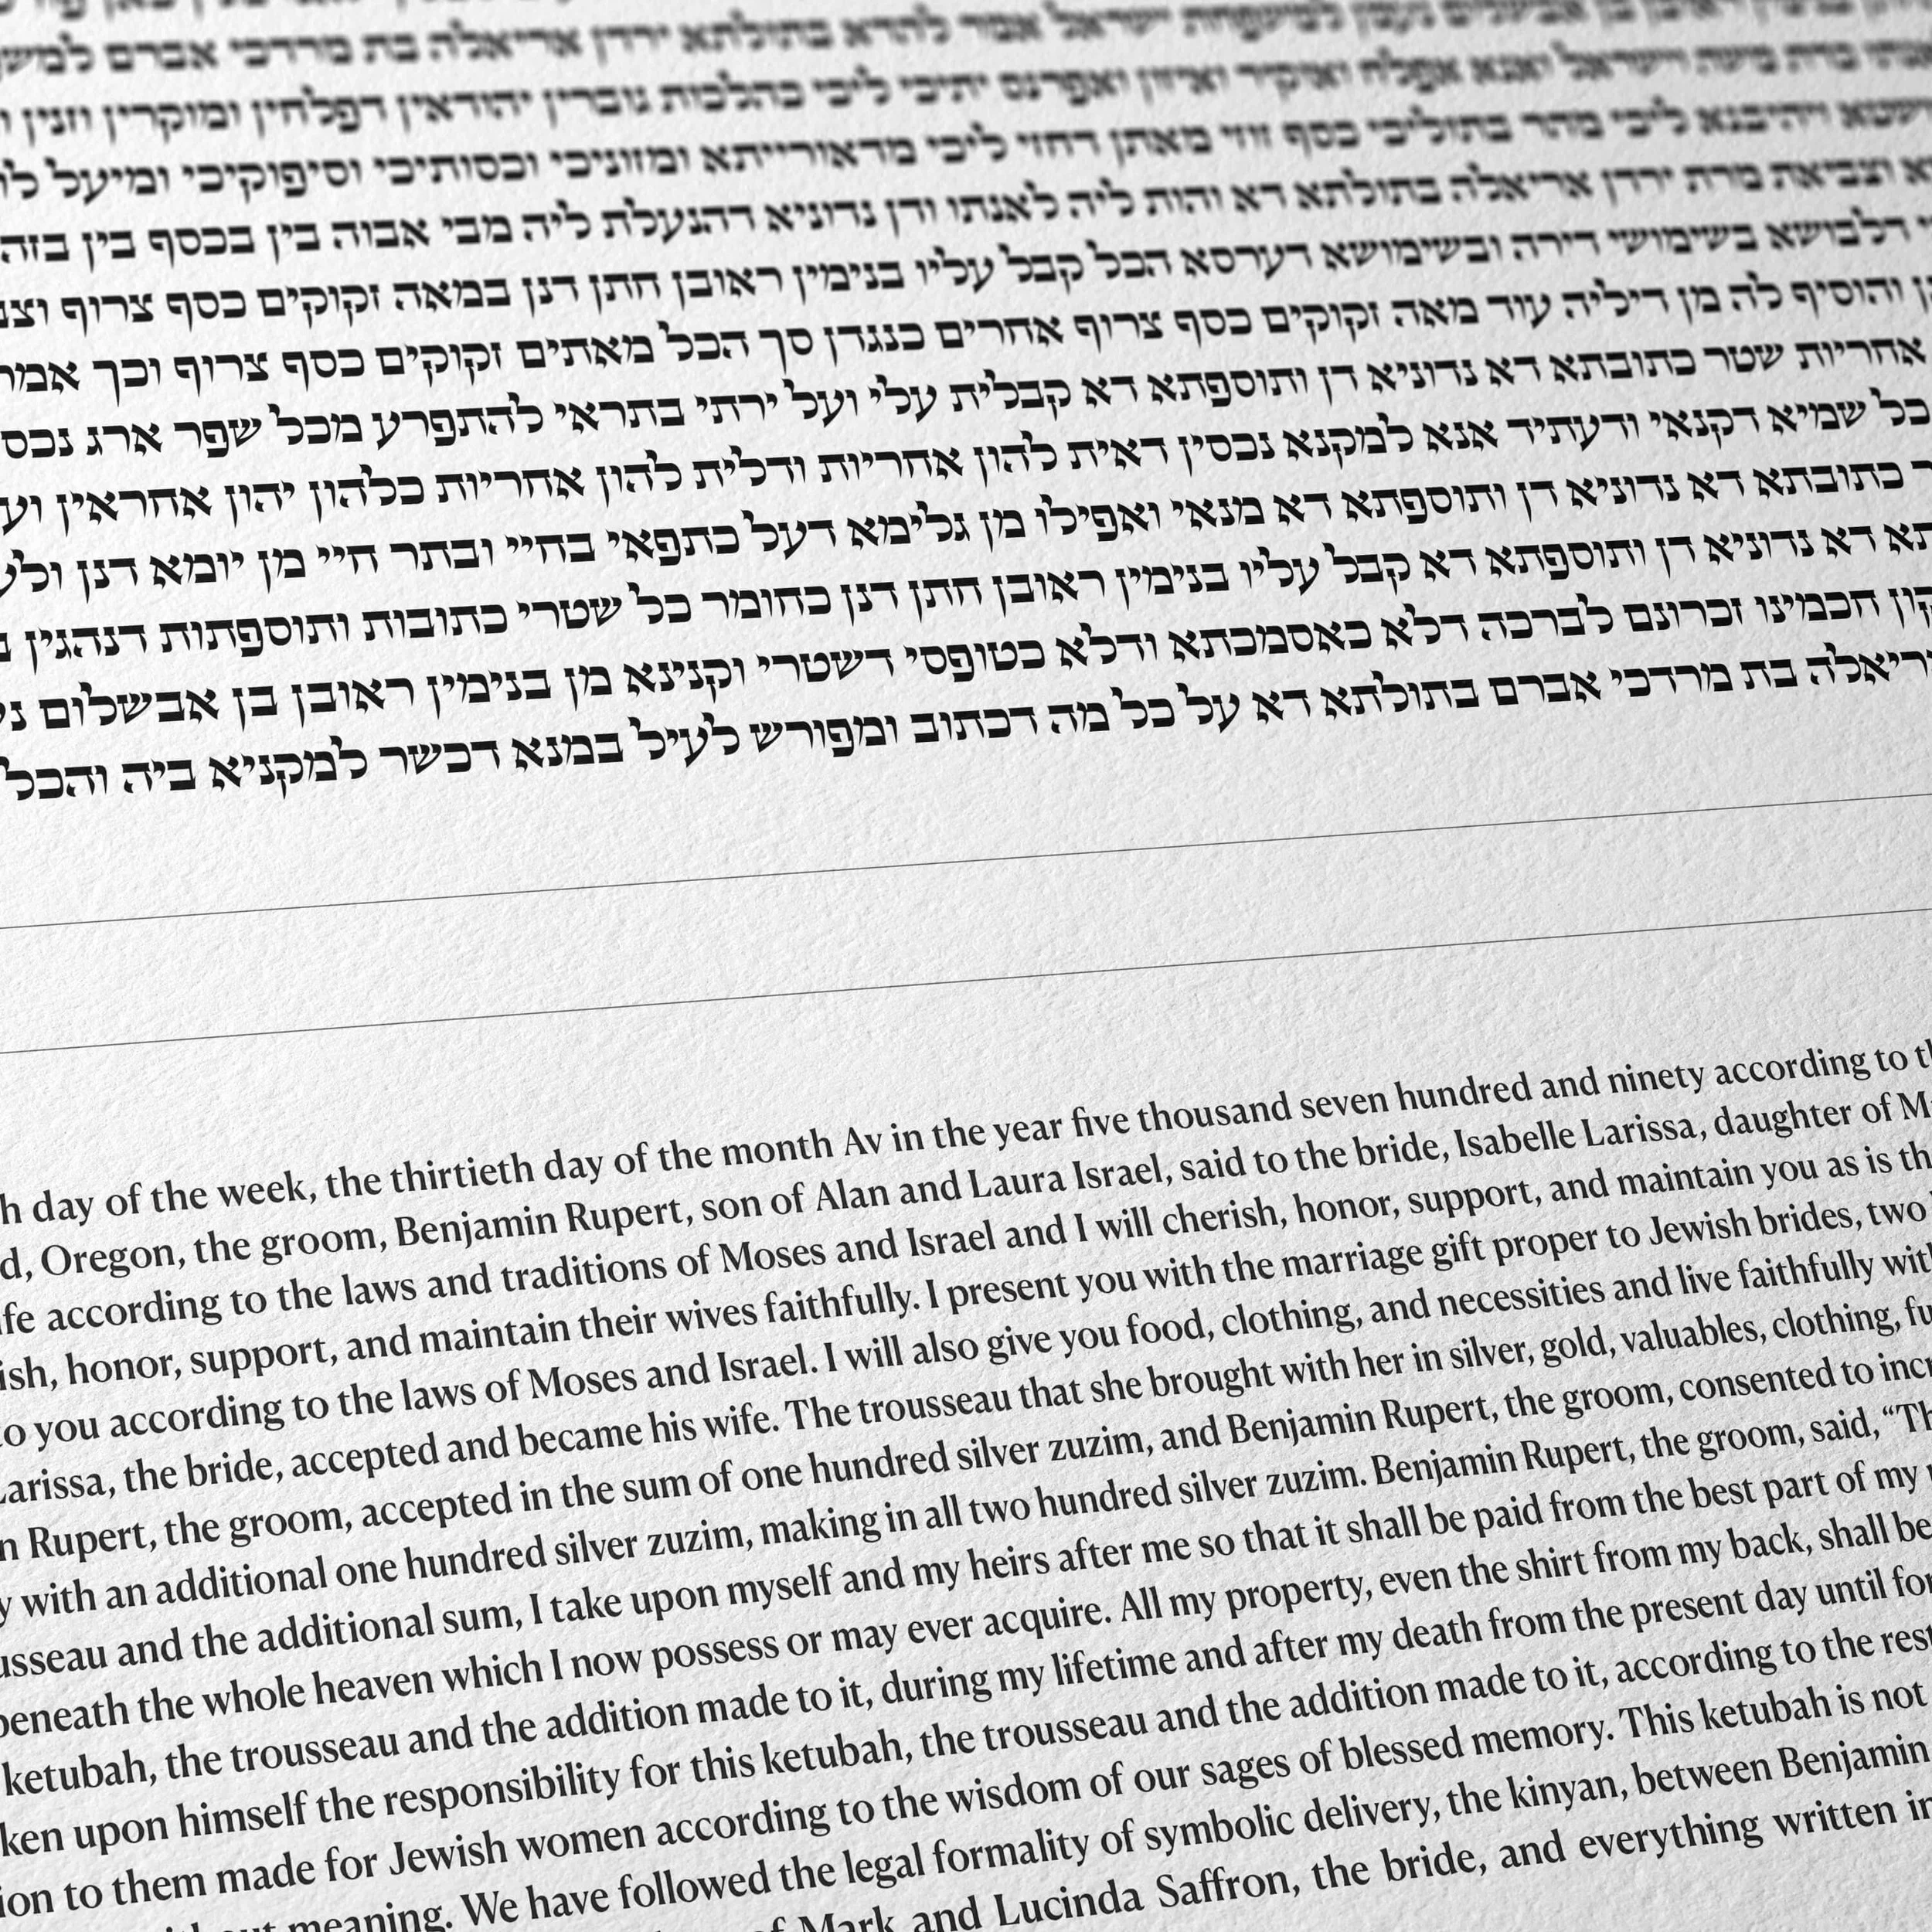 למשפחת ישראל אמר להדא בתולתא ירדן אריאלה בת מרדכי אברם
כדת משה וישראל ואנא אפלח ואוקיר ואיזון ואפרנס יתיכי ליכי כהלכות גוברין יהודאין דפלחין ומוקרין וזנין
ויהיבנא ליכי מהר בתוליכי כסף זוזי מאתן דחזי ליכי מדאורייתא ומזוניכי וכסותיכי וסיפוקיכי ומיעל
וצביאת מרת ירדן אריאלה בתולתא דא והות ליה לאנתו ודן נדוניא דהנעלת ליה מבי אבוה בין בכסף בין
דלבושא בשימושי דירה ובשימושא דערסא הכל קבל עליו בנימין ראובן חתן דנן במאה זקוקים כסף צרוף
והוסיף לה מן דיליה עוד מאה זקוקים כסף צרוף אחרים כנגדן סך הכל מאתים זקוקים כסף צרוף וכך
אחריות שטר כתובתא דא נדוניא דן ותוספתא דא קבלית עלי ועל ירתי בתראי להתפרע מכל שפר ארג נכס
כל שמיא דקנאי ודעתיד אנא למקנא נכסין דאית להון אחריות ודלית להון אחריות כלהון יהון אחראין
כתובתא דא נדוניא דן ותוספתא דא מנאי ואפילו מן גלימא דעל כתפאי בחיי ובתר חיי מן יומא דנן
דא נדוניא דן ותוספתא דא קבל עליו בנימין ראובן חתן דנן כחומר כל שטרי כתובות ותוספתות דנהגין
חכמינו זכרונם לברכה דלא כאסמכתא ודלא כטופסי דשטרי וקנינא מן בנימין ראובן בן אבשלום
ריאלה בת מרדכי אברם בתולתא דא על כל מה דכתוב ומפורש לעיל במנא דכשר למקניא ביה והכל
h day of the week, the thirtieth day of the month Av in the year five thousand seven hundred and ninety according to
d, Oregon, the groom, Benjamin Rupert, son of Alan and Laura Israel, said to the bride, Isabelle Larissa, daughter of
fe according to the laws and traditions of Moses and Israel and I will cherish, honor, support, and maintain you as is
ish, honor, support, and maintain their wives faithfully. I present you with the marriage gift proper to Jewish brides, two
to you according to the laws of Moses and Israel. I will also give you food, clothing, and necessities and live faithfully
Larissa, the bride, accepted and became his wife. The trousseau that she brought with her in silver, gold, valuables, clothing, fu
n Rupert, the groom, accepted in the sum of one hundred silver zuzim, and Benjamin Rupert, the groom, consented to incr
y with an additional one hundred silver zuzim, making in all two hundred silver zuzim. Benjamin Rupert, the groom, said, “Th
usseau and the additional sum, I take upon myself and my heirs after me so that it shall be paid from the best part of my
beneath the whole heaven which I now possess or may ever acquire. All my property, even the shirt from my back, shall be
ketubah, the trousseau and the addition made to it, during my lifetime and after my death from the present day until for
ken upon himself the responsibility for this ketubah, the trousseau and the addition made to it, according to the rest
ion to them made for Jewish women according to the wisdom of our sages of blessed memory. This ketubah is not
meaning. We have followed the legal formality of symbolic delivery, the kinyan, between Benjamin
of Mark and Lucinda Saffron, the bride, and everything written in